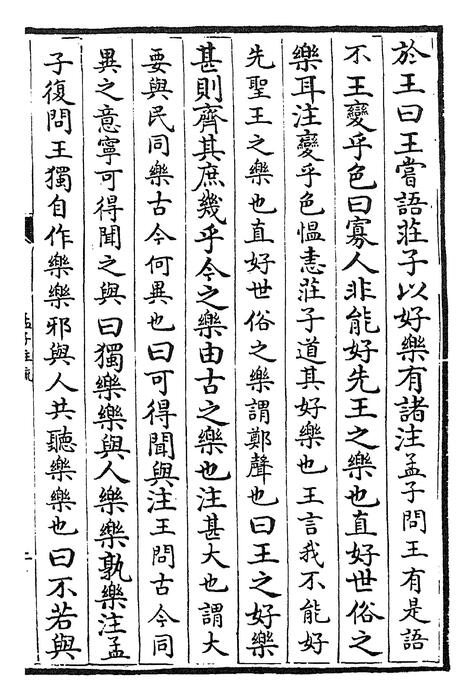 於王曰王嘗語莊子以好樂有諸注孟子問王有是語
不王變乎色曰寡人非能好先王之樂也直好世俗之
樂耳注變乎色愠恚莊子道其好樂也王言我不能好
先聖王之樂也直好世俗之樂謂鄭聲也曰王之好樂
甚則齊其庶幾乎今之樂由古之樂也注甚大也謂大
要與民同樂古今何異也曰可得聞與注王問古今同
異之意寧可得聞之與曰獨樂樂與人樂樂孰樂注孟
子復問王獨自作樂樂邪與人共聽樂樂也曰不若與